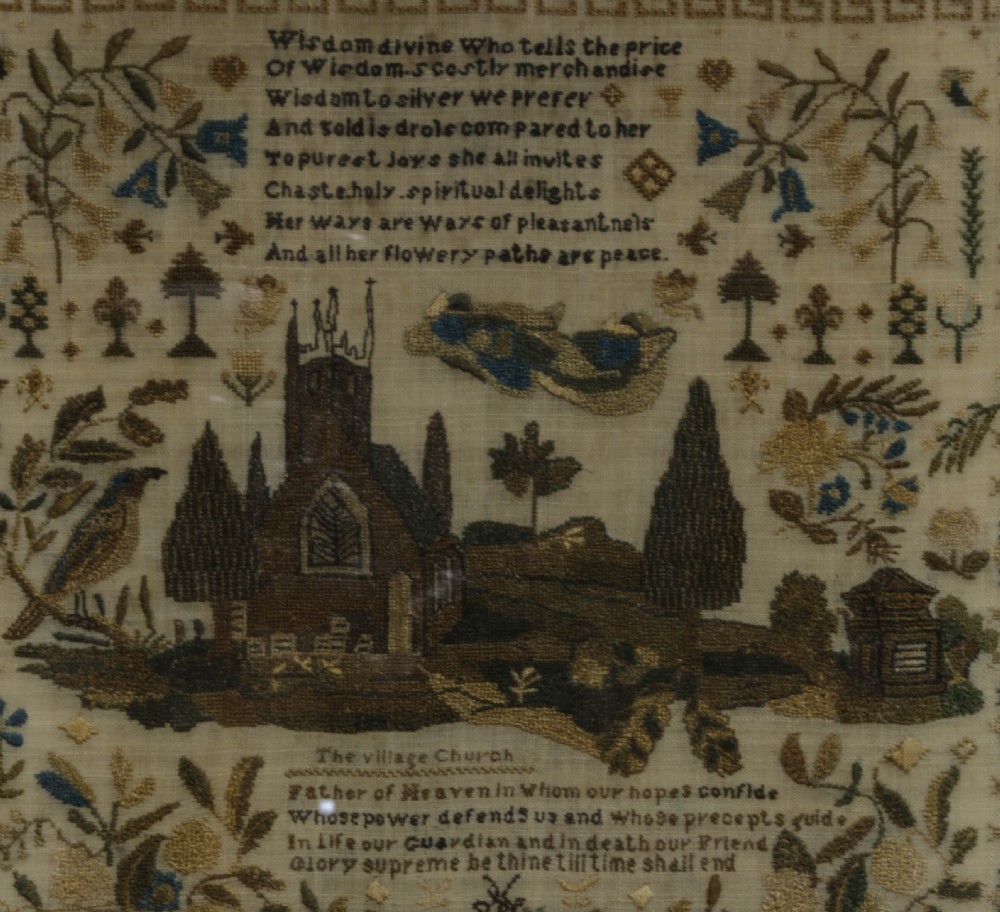 Wisdom divine Who tells the price
Of Wisdom.s costly merchandise
Wisdom to silver we prefer
And gold is drols compared to her
To purest Joys she all invites
Chaste.holy.spiritual delights
Her ways are ways of pleasantnels
And all her flowery paths are peace.
The village Church
Father of Heaven in Whom our hopes confide
Whose power defends us and whose precepts guide
In life our Guardian and in death our Friend
Glory supreme be thine till time shall end